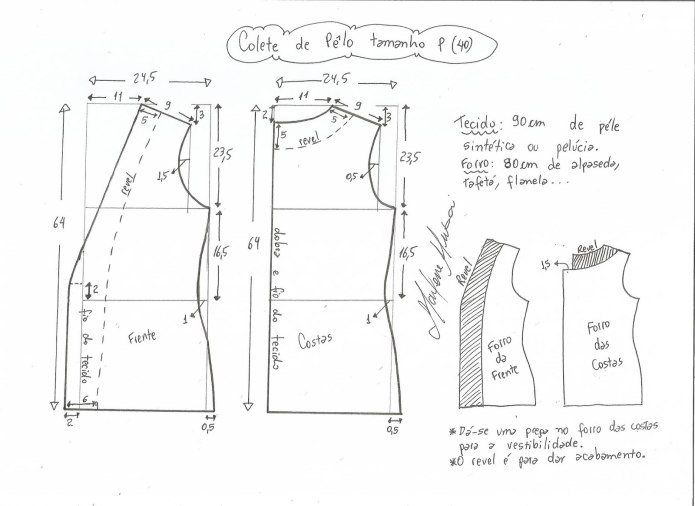 Colete de Pêlo tamanho P (40)
24,5
11
9
3
5
revel
1,5
23,5
64
16,5
2
1
Frente
fio do tecido
6
2
0,5
24,5
11
9
2
3
5
5
revel
0,5
23,5
64
16,5
1
dobra e fio do tecido
Costas
0,5
Tecido: 90cm de péle
sintética ou pelúcia.
Forro: 80cm de alpaseda,
tafetá, flanela...
Marlene Mukai
Revel
Forro
da
Frente
Revel
1,5
Forro
das
Costas
*Dá-se uma prega no forro das costas
para a vestibilidade.
*O revel é para dar acabamento.